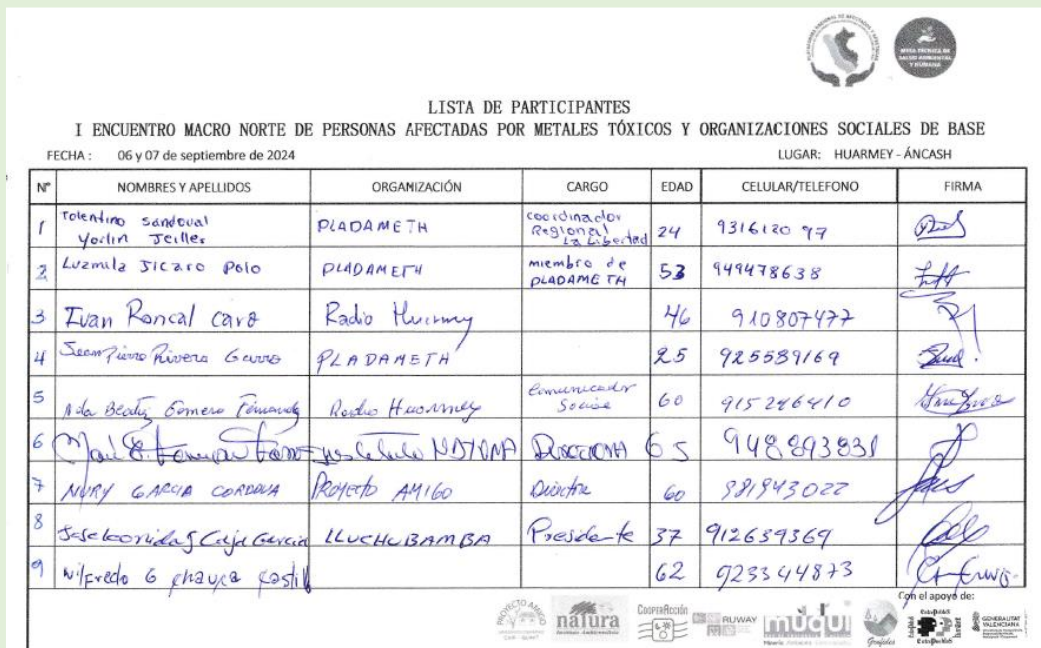 PLATAFORMA NACIONAL DE AFECTADOS Y AFECTADAS
MESA TÉCNICA DE
SALUD AMBIENTAL
Y HUMANA
LISTA DE PARTICIPANTES
I ENCUENTRO MACRO NORTE DE PERSONAS AFECTADAS POR METALES TÓXICOS Y ORGANIZACIONES SOCIALES DE BASE
FECHA : 06 y 07 de septiembre de 2024 LUGAR: HUARMEY - ÁNCASH
N° NOMBRES Y APELLIDOS ORGANIZACIÓN CARGO EDAD CELULAR/TELEFONO FIRMA
1 Tolentino Sandoval Yorlin Jeilles PLADAMETH coordinador Regional La Libertad 24 931612097
2 Luzmila Jicaro Polo PLADAMETH miembro de PLADAMETH 53 949478638
3 Ivan Roncal Caro Radio Huarmey 46 910807477
4 Jean Pierre Rivera Garro PLADAMETH 25 925589169
5 Ada Beatriz Gomero Radio Huarmey Comunicador Social 60 915246410
6 Instituto NATURA 65 948893831
7 NURY GARCIA CORDOVA PROYECTO AMIGO Directora 60 981943022
8 Jose Leonidas Caja Garcia LLUCHUBAMBA Presidente 37 912639369
9 Wilfredo G chauca castill 62 923344873
Con el apoyo de:
PROYECTO AMIGO
natura
COOPERACCIÓN
RUWAY
muqui
Grufides
EntrePobles
GENERALITAT
VALENCIANA